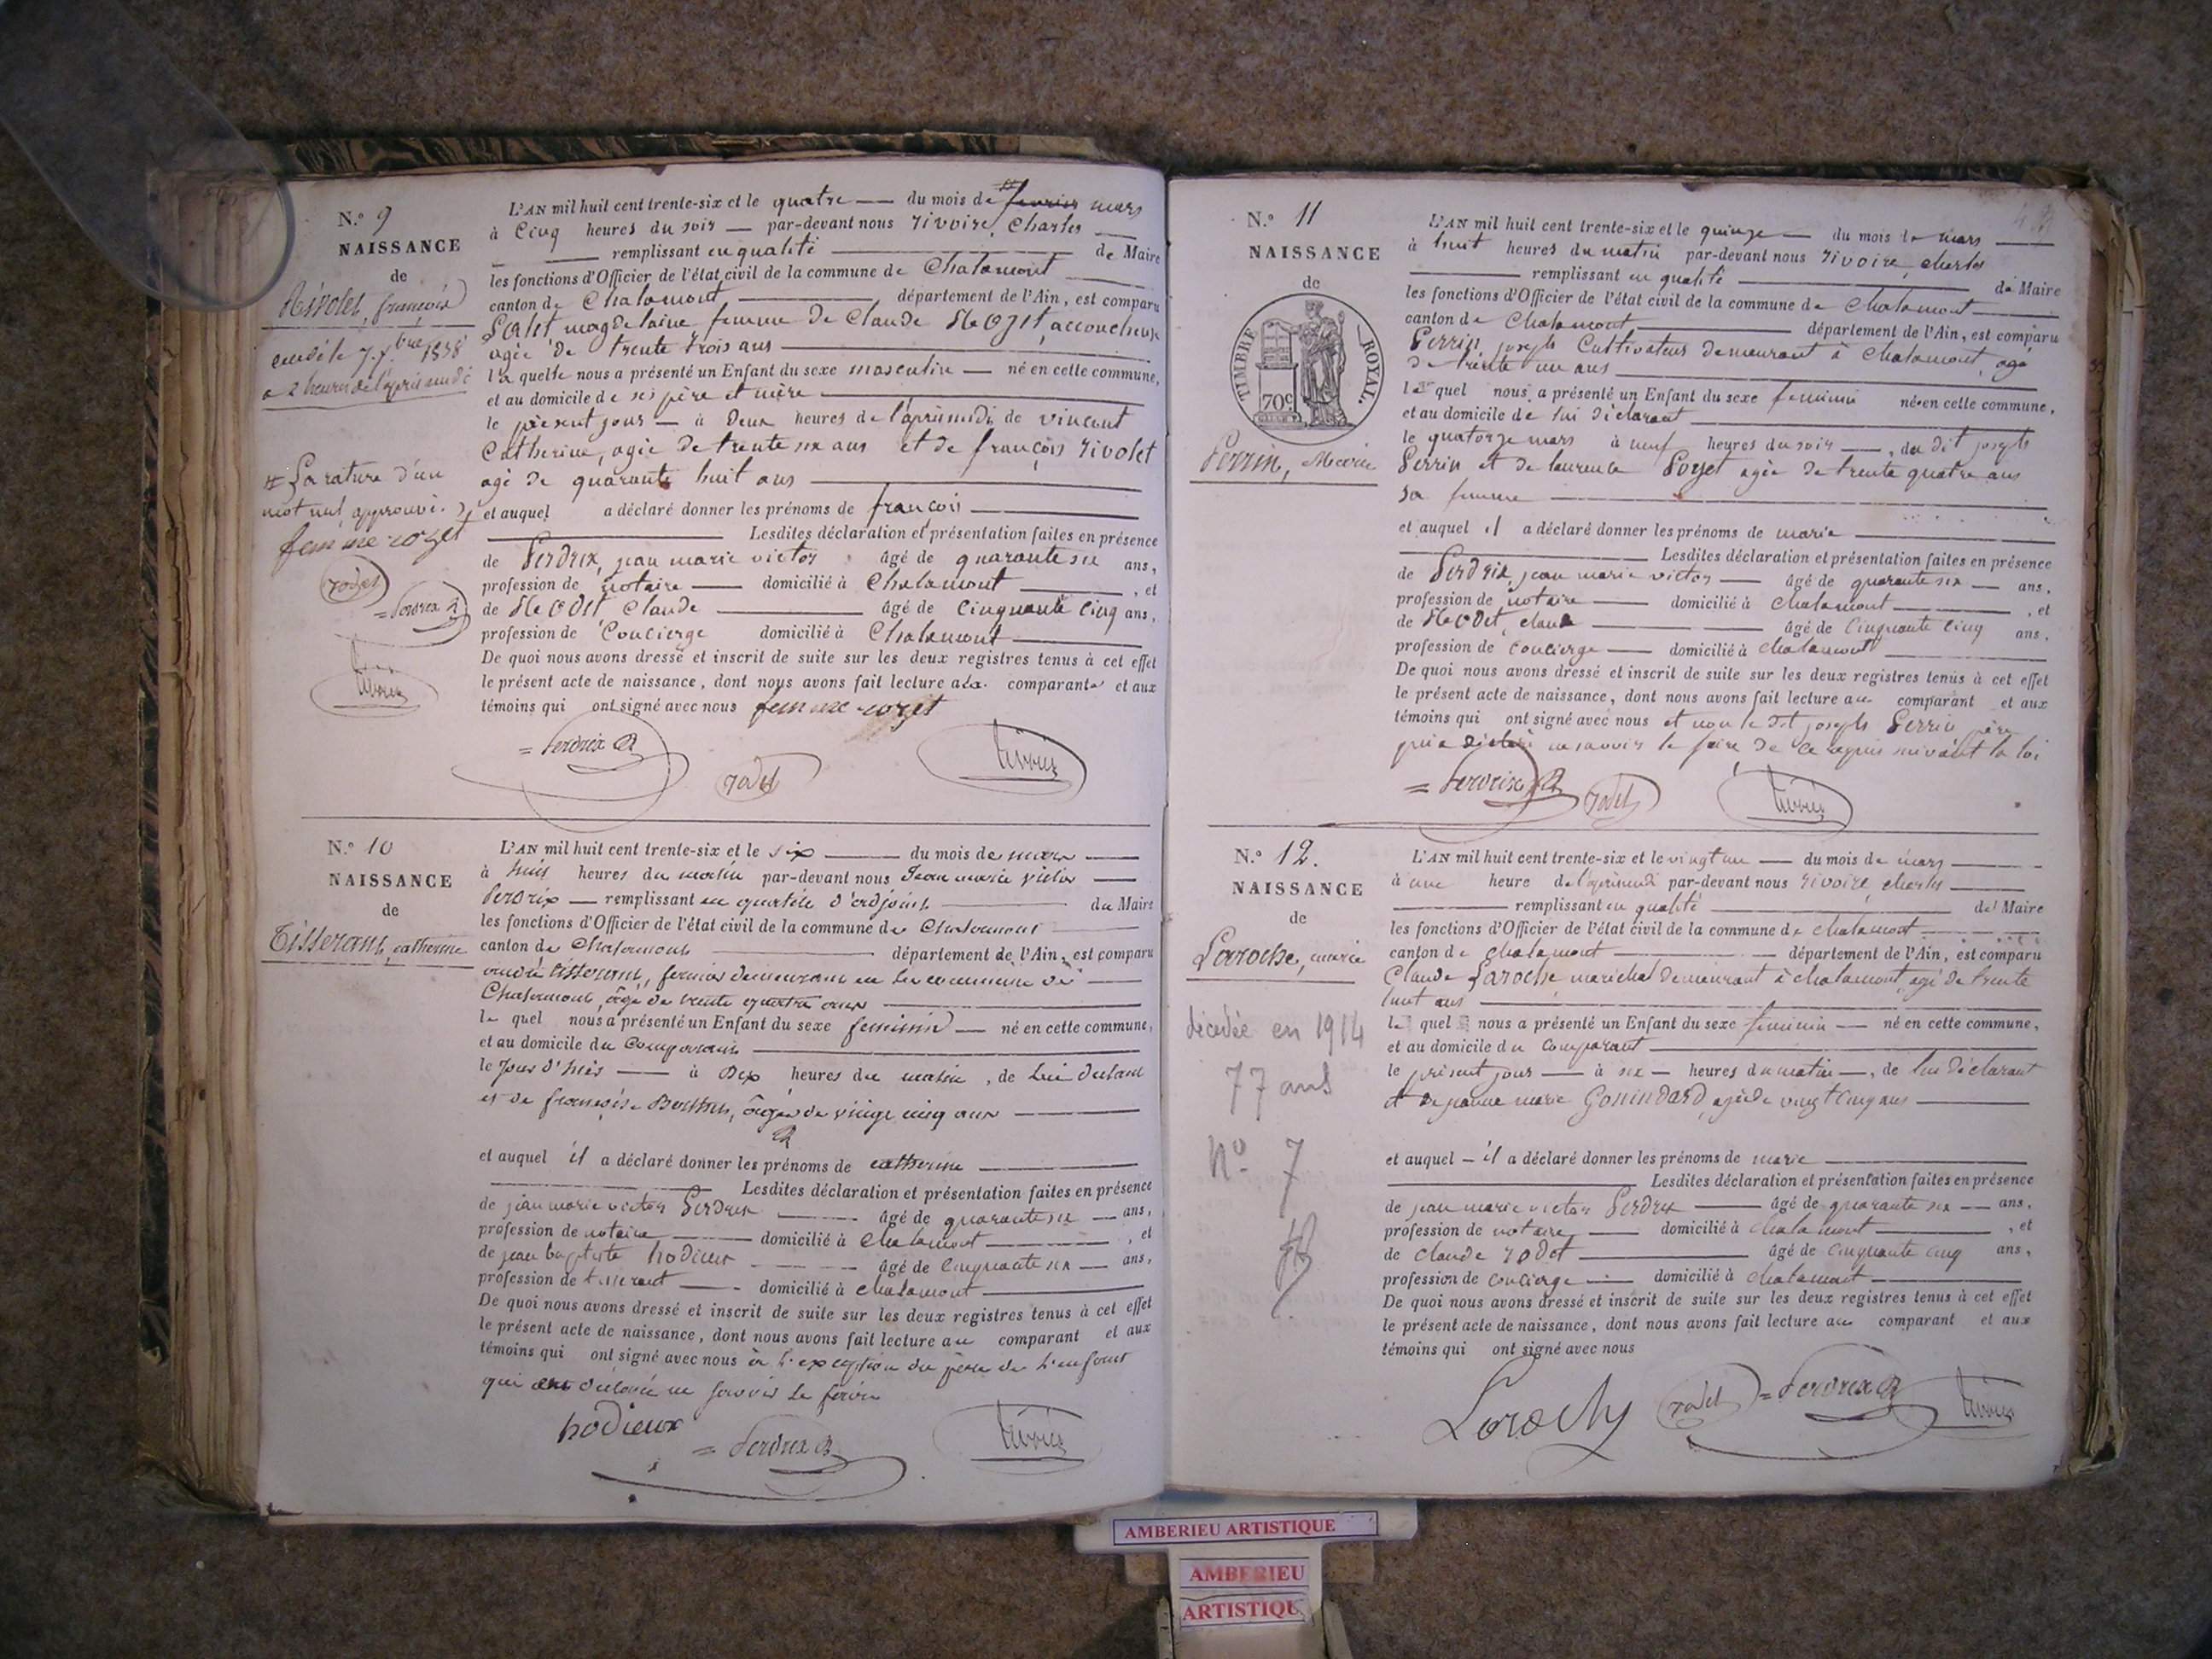 N.° 9
NAISSANCE
de
Rivolet, françois
décédé le 7 7bre 1838
a 2 heures de l'après midi
# La rature d'un
mot nul approuvé.
femme rozet
rodet
= Perdrix
L'AN mil huit cent trente-six et le quatre — du mois de # fevrier mars
à Cinq heures du soir — par-devant nous rivoire, Charles —
remplissant en qualité — de Maire
les fonctions d'Officier de l'état civil de la commune de Chalamont
canton de Chalamont — département de l'Ain, est comparu
magdelaine femme de Claude accoucheuse
agée de trente trois ans
la quelle nous a présenté un Enfant du sexe masculin — né en cette commune,
et au domicile de ses père et mère
le présent jour — à Deux heures de l'aprèsmidi, de vincent
Catherine, agée de trente six ans et de françois rivolet
agé de quarante huit ans
et auquel a déclaré donner les prénoms de françois
Lesdites déclaration et présentation faites en présence
de Perdrix, jean marie victor âgé de quarante six ans,
profession de notaire — domicilié à Chalamont —, et
de Rodet Claude — âgé de Cinquante Cinq ans,
profession de Concierge domicilié à Chalamont
De quoi nous avons dressé et inscrit de suite sur les deux registres tenus à cet effet
le présent acte de naissance, dont nous avons fait lecture a la comparante et aux
témoins qui ont signé avec nous femme rozet
= Perdrix
rodet
rivoire
N.° 10
NAISSANCE
de
Tisserant, catherine
L'AN mil huit cent trente-six et le six — du mois de mars —
à huit heures du matin par-devant nous Jean marie victor —
Perdrix — remplissant en qualité d'adjoint — du Maire
les fonctions d'Officier de l'état civil de la commune de Chalamont
canton de Chalamont — département de l'Ain, est comparu
andré tisserant, fermier demeurant en la commune de —
Chalamont, âgé de trente quatre ans
le quel nous a présenté un Enfant du sexe feminin — né en cette commune,
et au domicile du Comparant
le Jour d'hier — à Dix heures du matin, de Lui déclarant
et de françoise âgée de vingt cinq ans
et auquel il a déclaré donner les prénoms de catherine
Lesdites déclaration et présentation faites en présence
de jean marie victor Perdrix — âgé de quarante six — ans,
profession de notaire — domicilié à chalamont —, et
de jean baptiste hodieux — âgé de Cinquante six — ans,
profession de tisserant — domicilié à chalamont
De quoi nous avons dressé et inscrit de suite sur les deux registres tenus à cet effet
le présent acte de naissance, dont nous avons fait lecture au comparant et aux
témoins qui ont signé avec nous à l'exception du père de l'enfant
qui a déclaré ne savoir le faire
hodieux
= Perdrix
rivoire
N.° 11
NAISSANCE
de
TIMBRE ROYAL.
70c
Perrin, Marie
L'AN mil huit cent trente-six et le quinze — du mois de mars
à huit heures du matin par-devant nous rivoire, charles
remplissant en qualité — de Maire
les fonctions d'Officier de l'état civil de la commune de Chalamont
canton de Chalamont — département de l'Ain, est comparu
Perrin joseph Cultivateur demeurant à Chalamont, agé
de trente un ans
le quel nous a présenté un Enfant du sexe feminin né en cette commune,
et au domicile de lui déclarant
le quatorze mars à neuf heures du soir —, du dit joseph
Perrin et de laurence agée de trente quatre ans
sa femme
et auquel il a déclaré donner les prénoms de marie
Lesdites déclaration et présentation faites en présence
de Perdrix, jean marie victor — âgé de quarante six — ans,
profession de notaire — domicilié à Chalamont —, et
de Rodet, claude — âgé de Cinquante Cinq ans,
profession de Concierge — domicilié à chalamont
De quoi nous avons dressé et inscrit de suite sur les deux registres tenus à cet effet
le présent acte de naissance, dont nous avons fait lecture au comparant et aux
témoins qui ont signé avec nous et non le dit joseph Perrin père
qui a déclaré ne savoir le faire de ce requis suivant la loi
= Perdrix
rodet
rivoire
N.° 12.
NAISSANCE
de
Laroche, marie
décédée en 1914
77 ans
N° 7
L'AN mil huit cent trente-six et le vingt un — du mois de mars
à une heure de l'aprèsmidi par-devant nous rivoire, charles
remplissant en qualité — de Maire
les fonctions d'Officier de l'état civil de la commune de chalamont
canton de chalamont — département de l'Ain, est comparu
Claude Laroche marechal demeurant à chalamont, agé de trente
huit ans
le quel nous a présenté un Enfant du sexe feminin — né en cette commune,
et au domicile du Comparant
le présent jour — à six — heures du matin —, de lui déclarant
et de jeanne marie Gonindard, agée de vingt Cinq ans
et auquel — il a déclaré donner les prénoms de marie
Lesdites déclaration et présentation faites en présence
de jean marie victor Perdrix — âgé de quarante six — ans,
profession de notaire — domicilié à chalamont —, et
de claude rodet — âgé de cinquante cinq ans,
profession de concierge — domicilié à chalamont
De quoi nous avons dressé et inscrit de suite sur les deux registres tenus à cet effet
le présent acte de naissance, dont nous avons fait lecture au comparant et aux
témoins qui ont signé avec nous
Laroche
rodet
= Perdrix
rivoire
AMBERIEU ARTISTIQUE
AMBERIEU
ARTISTIQU